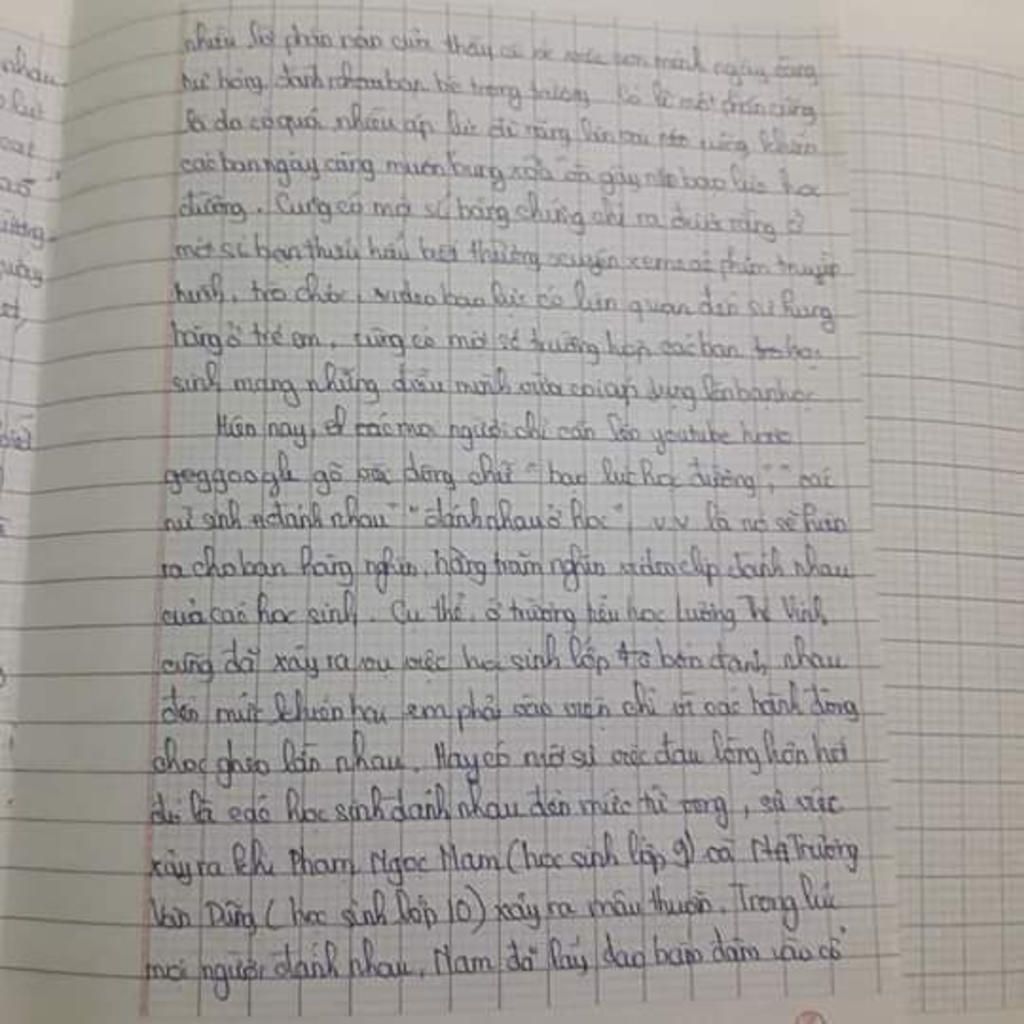 nhiều lời phàn nàn của thầy cô
hư hỏng, đánh nhau bạn bè trong trường. Có lẽ một phần cũng
là do có quá nhiều áp lực đè nặng lên khiến
các bạn ngày càng muốn bung xõa và gây nên bạo lực học
đường. Cũng có một số bằng chứng chỉ ra được rằng ở
một số bạn thiếu hiểu biết thường xuyên xem các phim truyền
hình, trò chơi, video bạo lực có liên quan đến sự hung
hăng ở trẻ em, cũng có một số trường hợp các bạn học
sinh mang những điều mình vừa coi áp dụng lên bạn học
Hiện nay, mọi người chỉ cần lên youtube hoặc
google gõ dòng chữ "bạo lực học đường", " các
nữ sinh đánh nhau" "đánh nhau ở học", v.v là nó sẽ hiện
ra cho bạn hàng nghìn, hàng trăm nghìn video clip đánh nhau
của các học sinh. Cụ thể, ở trường tiểu học Lương Thế Vinh
cũng đã xảy ra vụ việc học sinh lớp đánh nhau
đến mức khiến hai em phải vào viện chỉ vì các hành động
chọc ghẹo lẫn nhau. Hay có một sự việc đau lòng hơn
là có học sinh đánh nhau đến mức tử vong, sự việc
xảy ra khi Phạm Ngọc Nam (học sinh lớp 9) và Trương
Văn Dũng (học sinh lớp 10) xảy ra mâu thuẫn. Trong lúc
mọi người đánh nhau, Nam đã lấy dao bấm đâm vào cổ